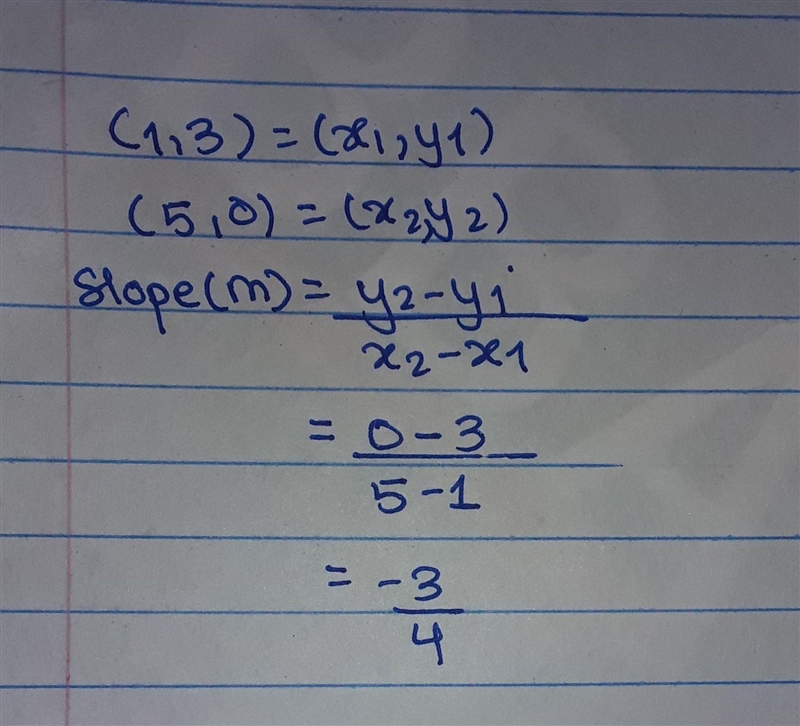 (1,3) = (x1,y1)
(5,0) = (x2,y2)
Slope(m) = y2-y1
x2-x1
= 0-3
5-1
= -3
4